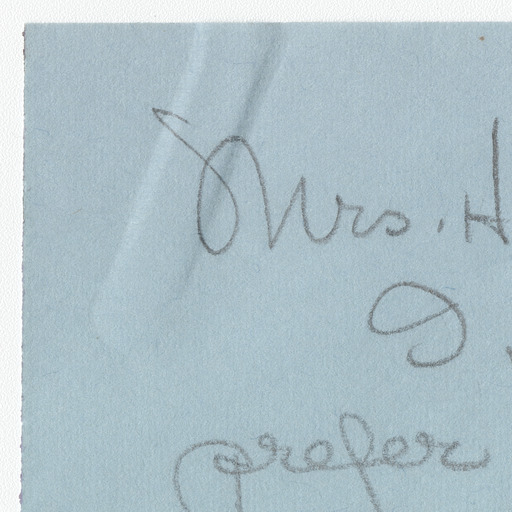 Mrs. H
I
prefer